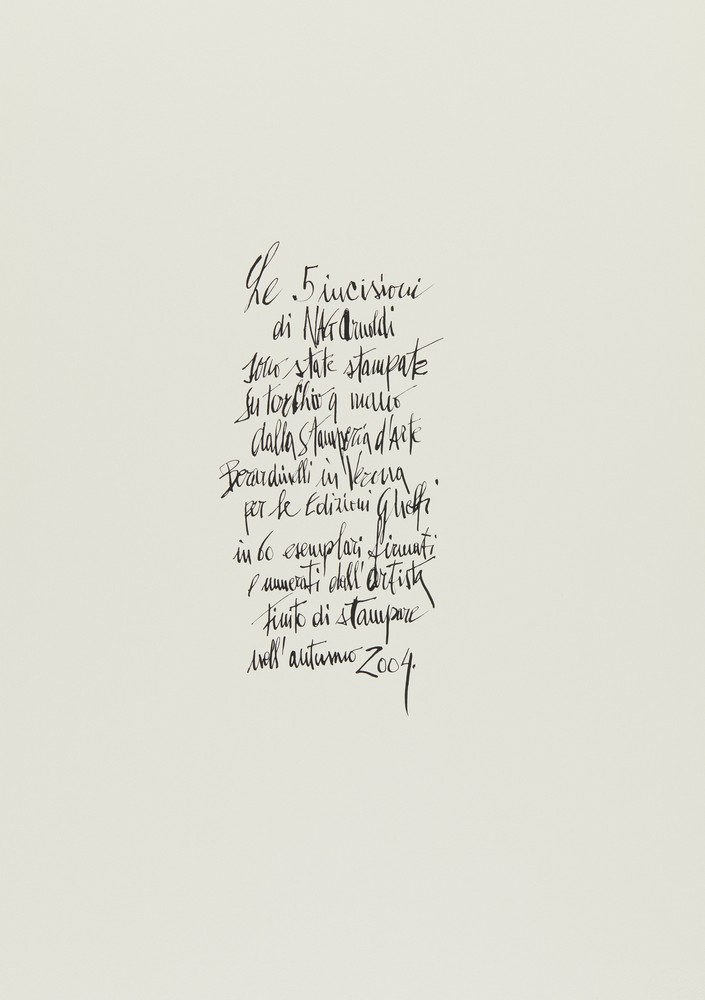 Le 5 incisioni
di NAG Arnoldi
sono state stampate
su torchio a mano
dalla Stamperia d'Arte
Berardinelli in Verona
per le Edizioni Ghelfi
in 60 esemplari firmati
e numerati dall'artista
Finito di stampare
nell'autunno 2004.